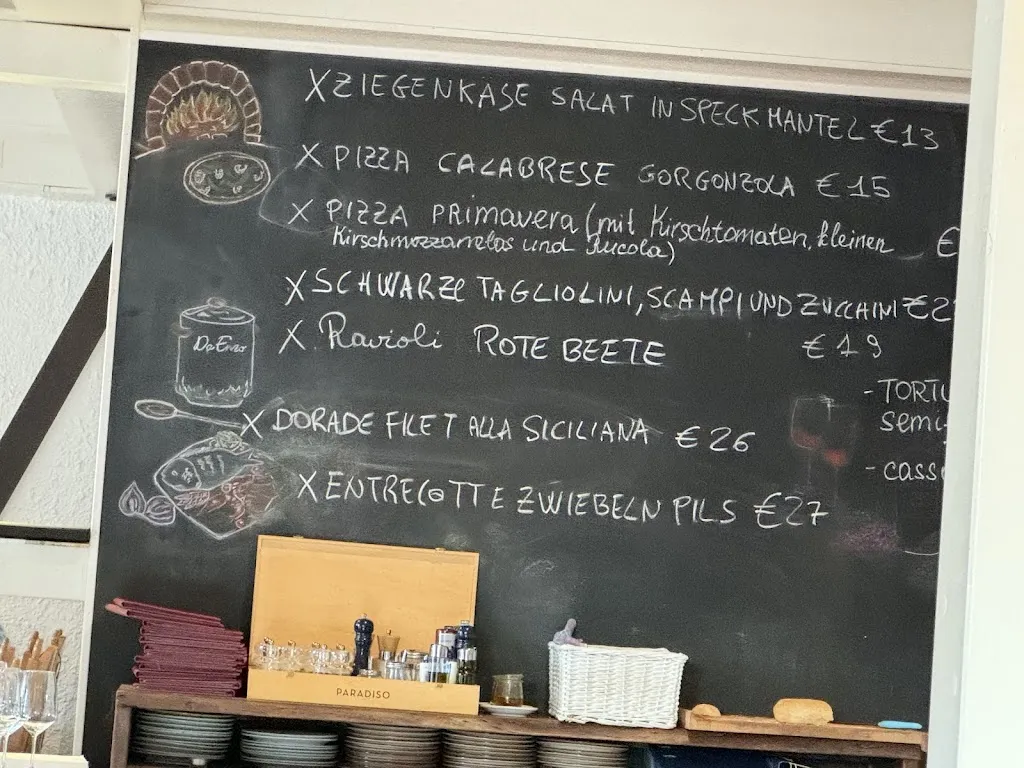 X ZIEGENKASE SALAT IN SPECK MANTEL €13
X PIZZA CALABRESE GORGONZOLA €15
X PIZZA PRIMAVERA (mit Kirschtomaten, kleinen €
Kirschmozzarellas und Rucola)
X SCHWARZE TAGLIOLINI, SCAMPI UND ZUCCHINI €2
X Ravioli ROTE BEETE €19
X DORADE FILET ALLA SICILIANA €26
X ENTRECOTTE ZWIEBELN PILS €27
- TORTU
semi-
- cass
Da Enzo
PARADISO